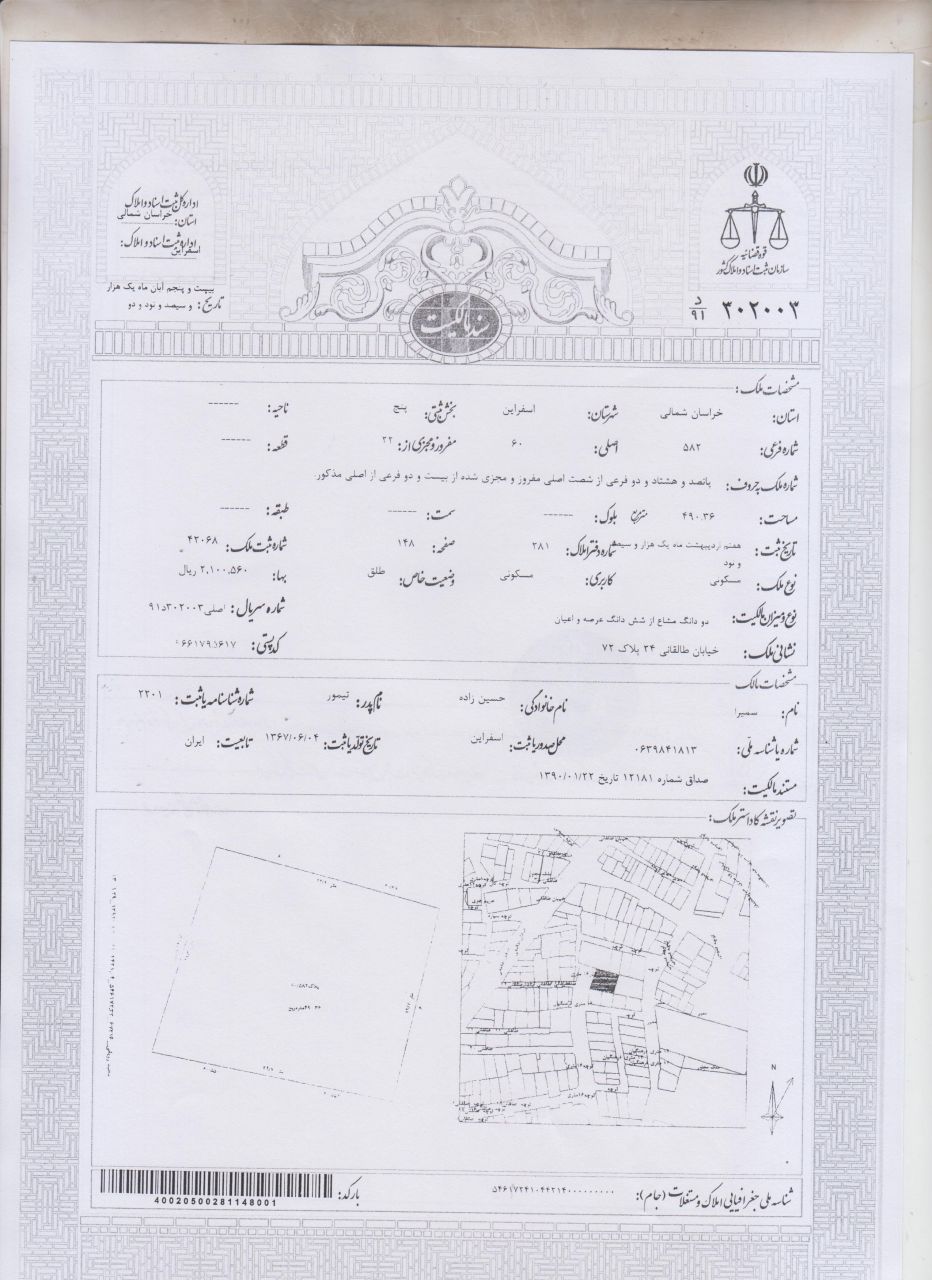 قوه قضائیه
سازمان ثبت اسناد و املاک کشور
۳۰۲۰۰۳ د/۹۱
اداره کل ثبت اسناد و املاک
استان: خراسان شمالی
اداره ثبت اسناد و املاک:
اسفراین
بیست و پنجم آبان ماه یک هزار
تاریخ: و سیصد و نود و دو
سند مالکیت
مشخصات ملک:
استان: خراسان شمالی شهرستان: اسفراین بخش ثبتی: پنج ناحیه: ------
شماره فرعی: ۵۸۲ اصلی: ۶۰ مفروز و مجزی از: ۲۲ قطعه: ------
شماره ملک به حروف: پانصد و هشتاد و دو فرعی از شصت اصلی مفروز و مجزی شده از بیست و دو فرعی از اصلی مذکور
مساحت: ۴۹۰.۳۶ متر مربع بلوک: ------ سمت: ------ طبقه: ------
تاریخ ثبت: هفتم اردیبهشت ماه یک هزار و سیصد و نود شماره دفتر املاک: ۲۸۱ صفحه: ۱۴۸ شماره ثبت ملک: ۴۲۰۶۸
نوع ملک: مسکونی کاربری: مسکونی وضعیت خاص: طلق بها: ۲,۱۰۰,۵۶۰ ریال
نوع و میزان مالکیت: دو دانگ مشاع از شش دانگ عرصه و اعیان شماره سریال: اصلی ۳۰۲۰۰۳د۹۱
نشانی ملک: خیابان طالقانی ۲۴ پلاک ۷۲ کد پستی:
مشخصات مالک
نام: سمیرا نام خانوادگی: حسین زاده نام پدر: تیمور شماره شناسنامه یا ثبت: ۲۲۰۱
شماره یا شناسه ملی: ۰۶۳۹۸۴۱۸۱۳ محل صدور یا ثبت: اسفراین تاریخ تولد یا ثبت: ۱۳۶۷/۰۶/۰۴ تابعیت: ایران
مستند مالکیت: صداق شماره ۱۲۱۸۱ تاریخ ۱۳۹۰/۰۱/۲۲
تصویر نقشه کاداستر ملک:
N
شناسه ملی جغرافیایی املاک و مستغلات (جام):
بارکد:
40020500281148001